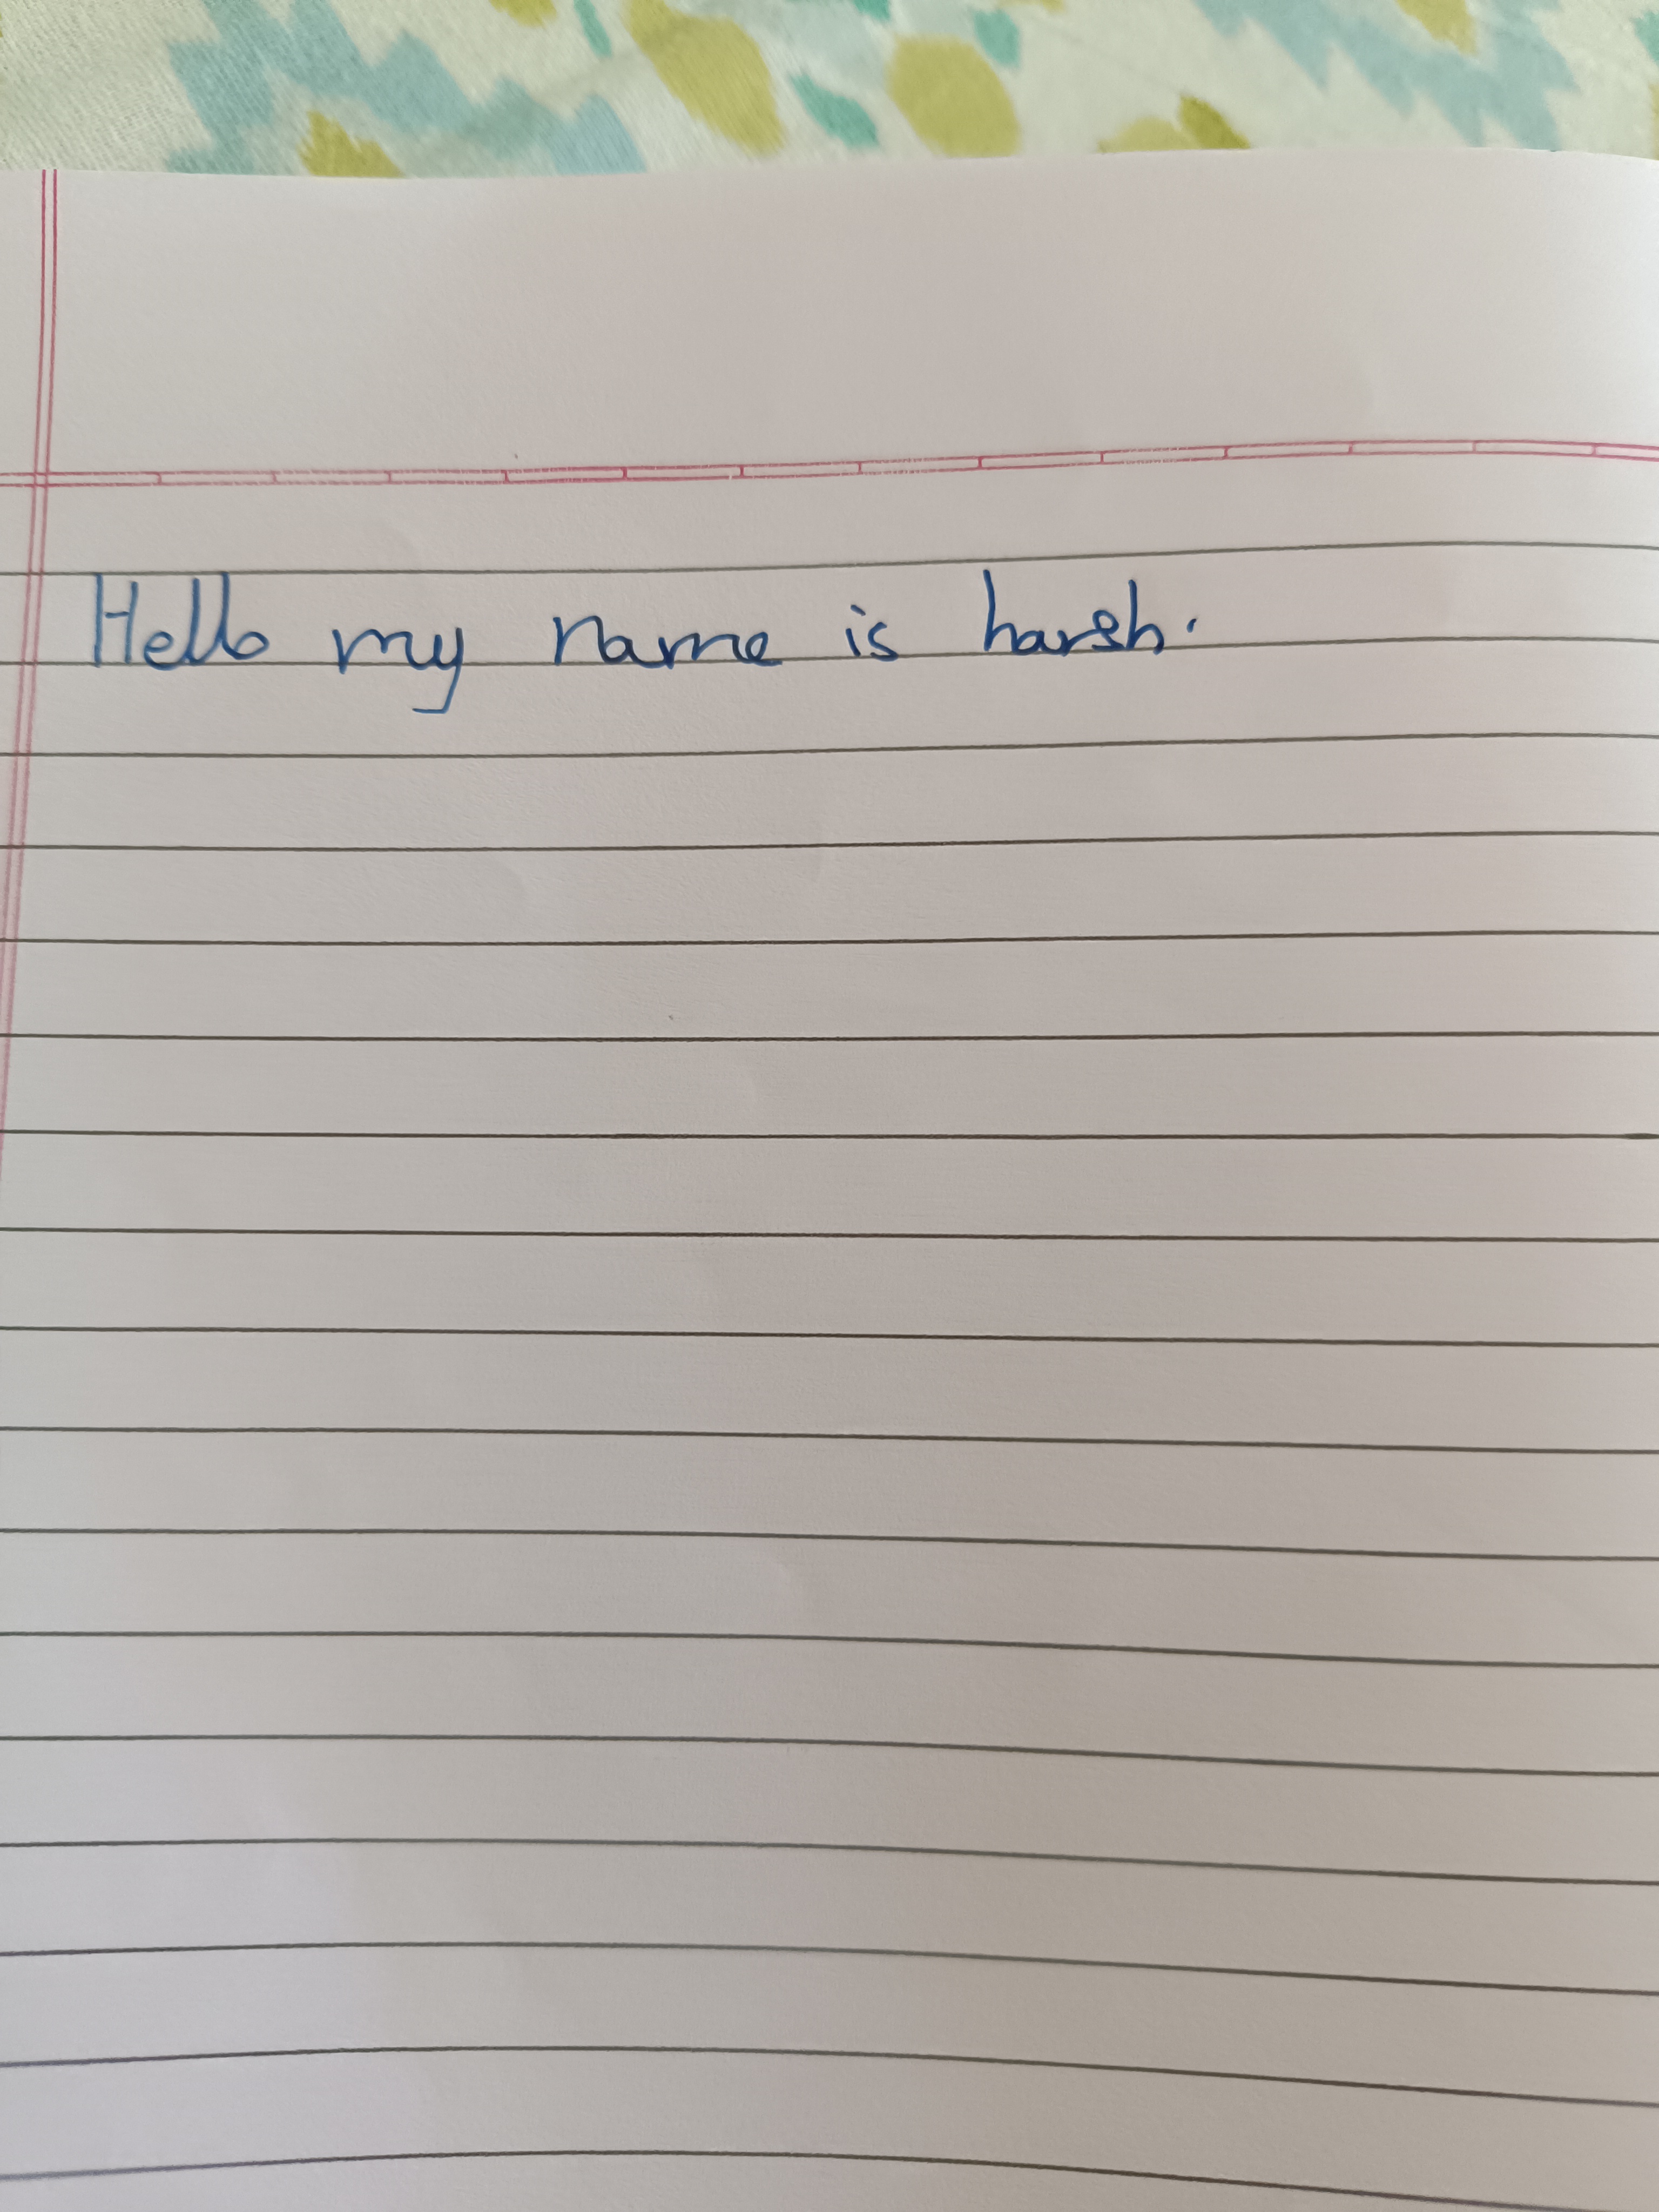 Hello my name is harsh.